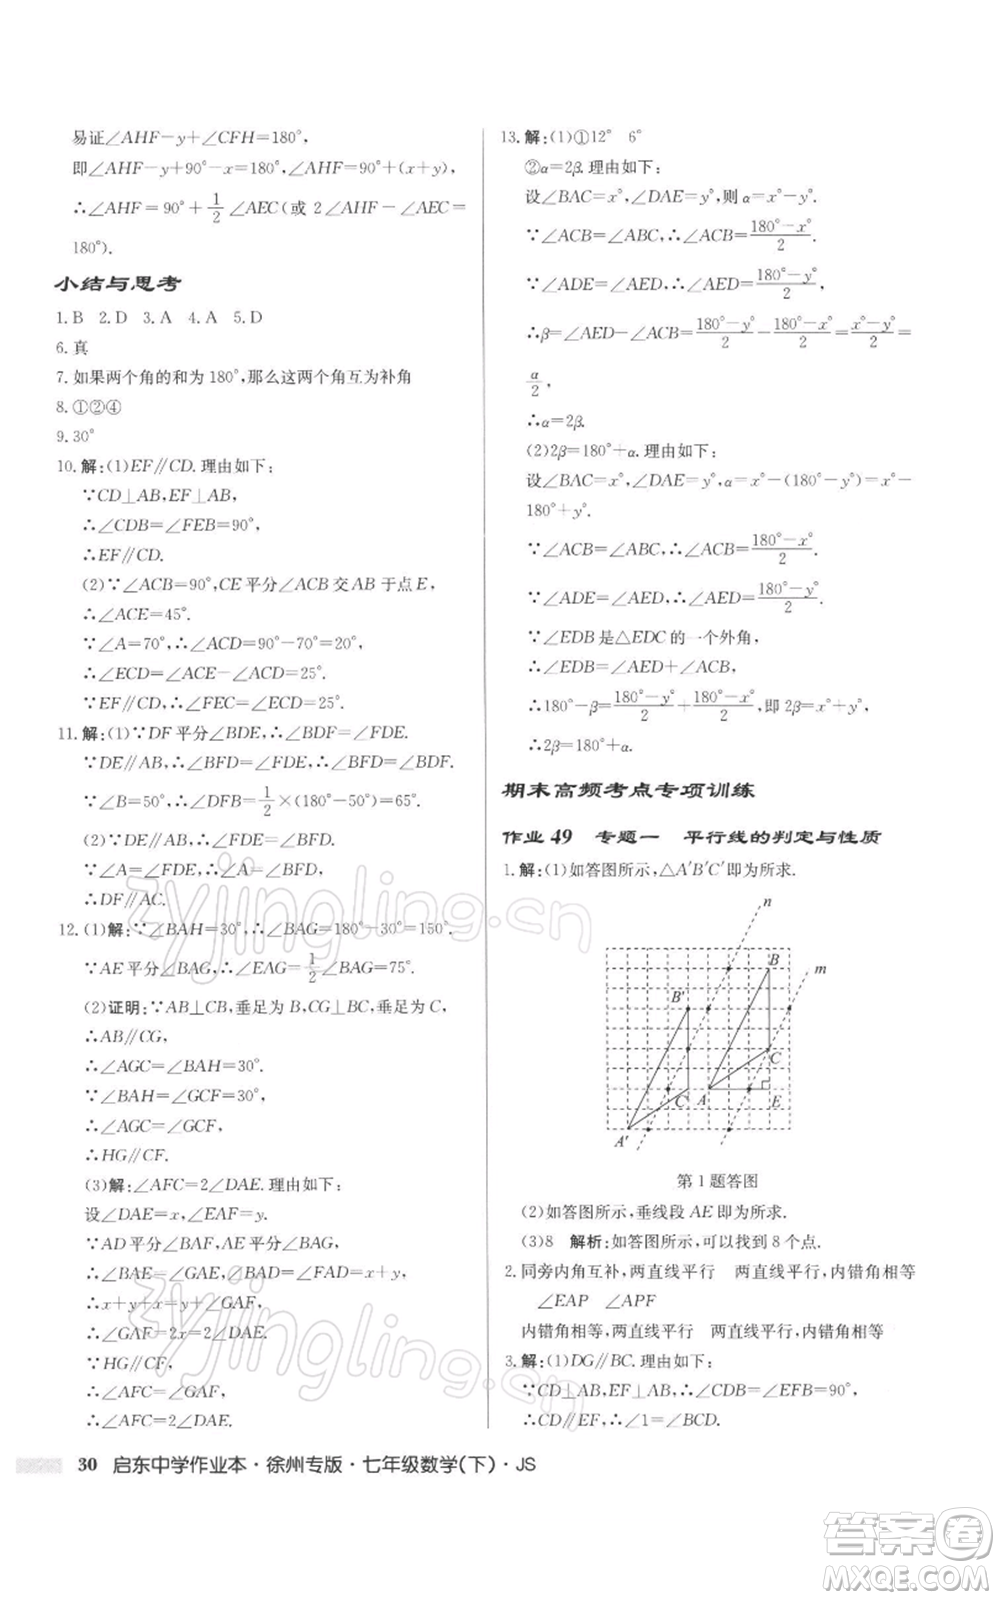 易证∠AHF－y＋∠CFH＝180°,
即∠AHF－y＋90°－x＝180°,∠AHF＝90°＋(x＋y),
∴∠AHF＝90°＋1/2∠AEC(或 2∠AHF－∠AEC＝
180°).
小结与思考
1. B 2. D 3. A 4. A 5. D
6. 真
7. 如果两个角的和为 180°,那么这两个角互为补角
8. ①②④
9. 30°
10. 解:(1)EF∥CD. 理由如下:
∵CD⊥AB,EF⊥AB,
∴∠CDB＝∠FEB＝90°,
∴EF∥CD.
(2)∵∠ACB＝90°,CE 平分∠ACB 交 AB 于点 E,
∴∠ACE＝45°.
∵∠A＝70°,∴∠ACD＝90°－70°＝20°,
∴∠ECD＝∠ACE－∠ACD＝25°.
∵EF∥CD,∴∠FEC＝∠ECD＝25°.
11. 解:(1)∵DF 平分∠BDE,∴∠BDF＝∠FDE.
∵DE∥AB,∴∠BFD＝∠FDE,∴∠BFD＝∠BDF.
∵∠B＝50°,∴∠DFB＝1/2×(180°－50°)＝65°.
(2)∵DE∥AB,∴∠FDE＝∠BFD.
∵∠FDE＝∠A,∴∠A＝∠BFD,
∴DF∥AC.
12. (1)解:∵∠BAH＝30°,∴∠BAG＝180°－30°＝150°.
∵AE平分∠BAG,∴∠EAG＝1/2∠BAG＝75°.
(2)证明:∵AB⊥CB,垂足为 B,CG⊥BC,垂足为 C,
∴AB∥CG,
∴∠AGC＝∠BAH＝30°.
∵∠BAH＝∠GCF＝30°,
∴∠AGC＝∠GCF,
∴HG∥CF.
(3)解:∠AFC＝2∠DAE. 理由如下:
设∠DAE＝x,∠AFE＝y.
∵AD 平分∠BAF,∠AFB＝∠BAE,
∴∠DAF＝∠BAD＝x＋y,
∴x＋y＋x＝y＋∠GAF,
∴∠GAF＝2x＝2∠DAE.
∵HG∥CF,
∴∠AFC＝∠GAF,
∴∠AFC＝2∠DAE.
13. 解:(1)①12° 6°
②α＝2β. 理由如下:
设∠BAC＝x°,∠DAE＝y°,则 α＝x°－y°.
∵∠ACB＝∠ABC,∴∠ACB＝180°－x°/2.
∵∠ADE＝∠AED,∴∠AED＝180°－y°/2,
∴β＝∠AED－∠ACB＝180°－y°/2－180°－x°/2＝x°－y°/2＝
α/2,
∴α＝2β.
(2)2β＝180°＋α. 理由如下:
设∠BAC＝x°,∠DAE＝y°,α＝x°－(180°－y°)＝x°－
180°＋y°.
∵∠ACB＝∠ABC,∴∠ACB＝180°－x°/2.
∵∠ADE＝∠AED,∴∠AED＝180°－y°/2.
∵∠EDB是△EDC 的一个外角,
∴∠EDB＝∠AED＋∠ACB,
∴180°－β＝180°－y°/2＋180°－x°/2,即 2β＝x°＋y°,
∴2β＝180°＋α.
期末高频考点专项训练
作业 49 专题一 平行线的判定与性质
1. 解:(1)如答图所示,△A′B′C′即为所求.
n
B
m
B′
C
C′
A
E
A′
第 1 题答图
(2)如答图所示,垂线段 AE 即为所求.
(3)8 解析:如答图所示,可以找到 8 个点.
2. 同旁内角互补,两直线平行 两直线平行,内错角相等
∠EAP ∠APF
内错角相等,两直线平行 两直线平行,内错角相等
3. 解:(1)DG∥BC. 理由如下:
∵CD⊥AB,EF⊥AB,∴∠CDB＝∠EFB＝90°,
∴CD∥EF,∴∠1＝∠BCD.
30 启东中学作业本·徐州专版·七年级数学(下)·JS
zyjingling.cn
zyjingling.cn
答案卷
MXQE.COM